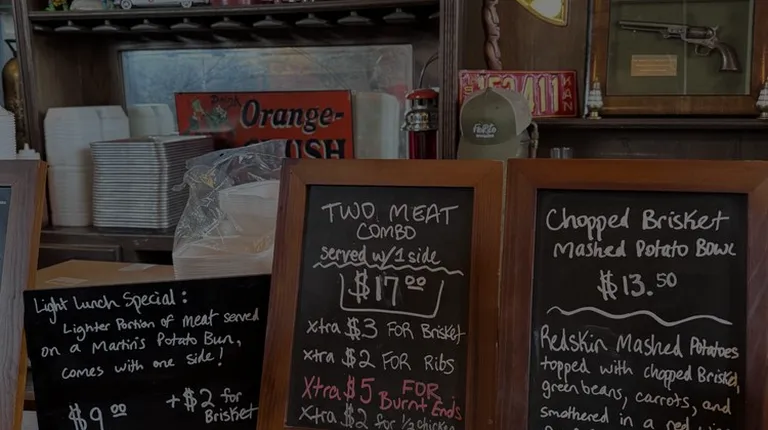 Orange-
CRUSH
KAN
Light Lunch Special:
Lighter Portion of meat served
on a Martin's Potato Bun,
comes with one side!
$9.00
+$2 for
Brisket
TWO MEAT
COMBO
served w/1 side
$17.00
Xtra $3 FOR Brisket
Xtra $2 FOR Ribs
Xtra $5 FOR
Burnt Ends
Xtra $2 for 1/2 chicken
Chopped Brisket
Mashed Potato Bowl
$13.50
Redskin Mashed Potatoes
topped with chopped Brisket,
green beans, carrots, and
smothered in a red